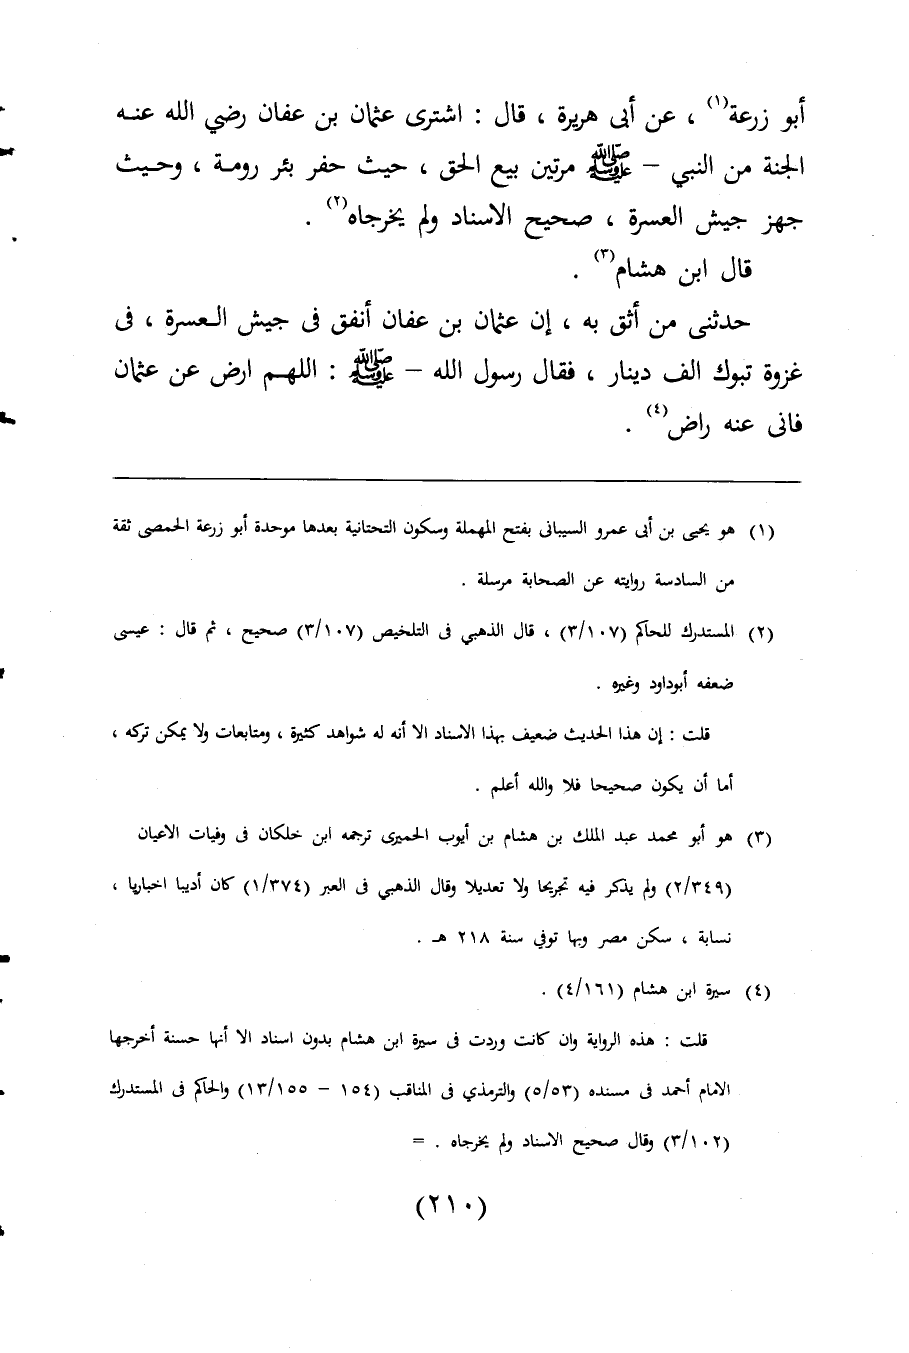 أبو زرعة(١) ، عن أبى هريرة ، قال : اشترى عثمان بن عفان رضي الله عنـه
الجنة من النبي – ﷺ مرتين بيع الحق ، حيث حفر بئر رومـة ، وحـيث
جهز جيش العسرة ، صحيح الاسناد ولم يخرجاه(٢) .
قال ابن هشام(٣) .
حدثنى من أثق به ، إن عثمان بن عفان أنفق فى جيش الـعسرة ، فى
غزوة تبوك الف دينار ، فقال رسول الله – ﷺ : اللهـم ارض عن عثمان
فانى عنه راض(٤) .
(١) هو يحيى بن أبى عمرو السيبانى بفتح المهملة وسكون التحتانية بعدها موحدة أبو زرعة الحمصى ثقة
من السادسة روايته عن الصحابة مرسلة .
(٢) المستدرك للحاكم (٣/١٠٧) ، قال الذهبي فى التلخيص (٣/١٠٧) صحيح ، ثم قال : عيسى
ضعفه أبوداود وغيره .
قلت : إن هذا الحديث ضعيف بهذا الاسناد الا أنه له شواهد كثيرة ، ومتابعات ولا يمكن تركه ،
أما أن يكون صحيحا فلا والله أعلم .
(٣) هو أبو محمد عبد الملك بن هشام بن أيوب الحميرى ترجمه ابن خلكان فى وفيات الاعيان
(٢/٣٤٩) ولم يذكر فيه تجريحا ولا تعديلا وقال الذهبي فى العبر (١/٣٧٤) كان أديبا اخباريا ،
نسابة ، سكن مصر وبها توفي سنة ٢١٨ هـ .
(٤) سيرة ابن هشام (٤/١٦١) .
قلت : هذه الرواية وان كانت وردت فى سيرة ابن هشام بدون اسناد الا أنها حسنة أخرجها
الامام أحمد فى مسنده (٥/٥٣) والترمذي فى المناقب (١٥٤ – ١٣/١٥٥) والحاكم فى المستدرك
(٣/١٠٢) وقال صحيح الاسناد ولم يخرجاه . =
(٢١٠)